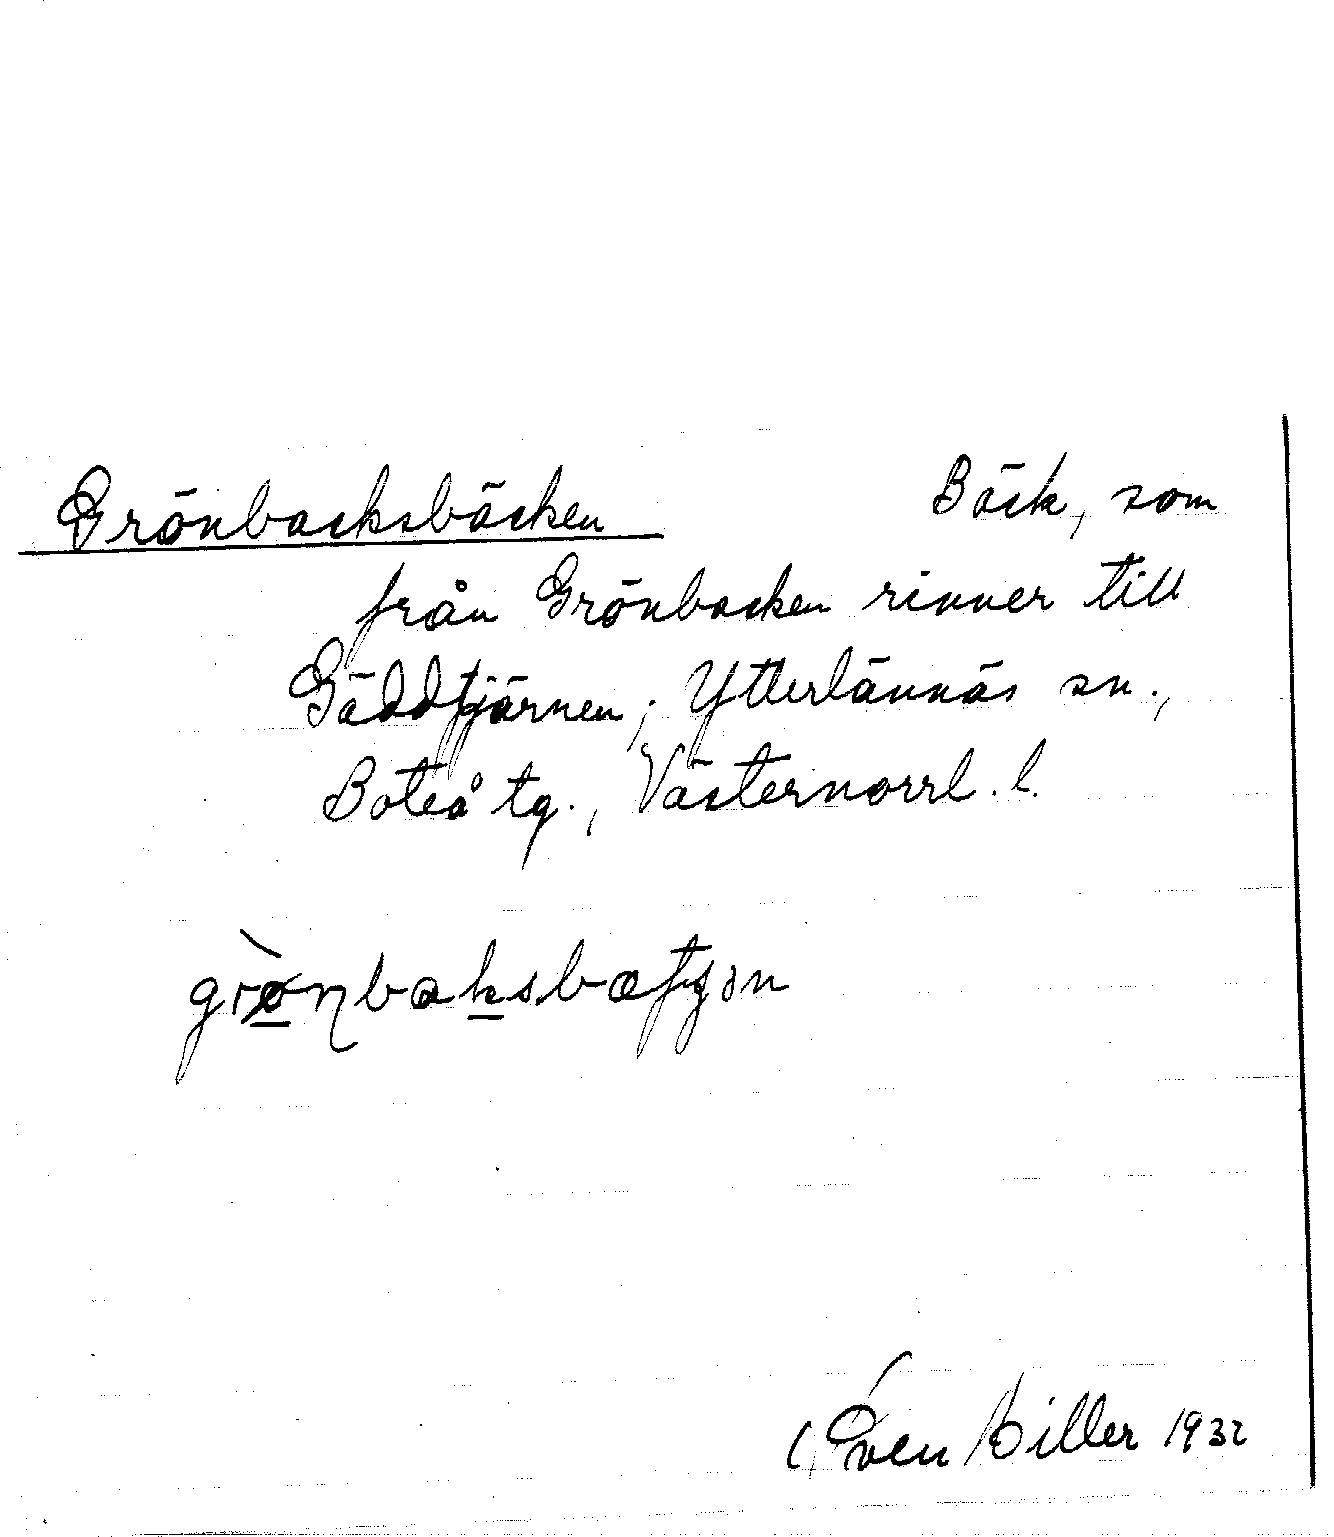 Grönbacksbäcken Bäck, som
från Grönbacken rinner till
Gäddtjärnen, Ytterlännäs sn.,
Boteå tg., Västernorrl. l.
Sven 1932